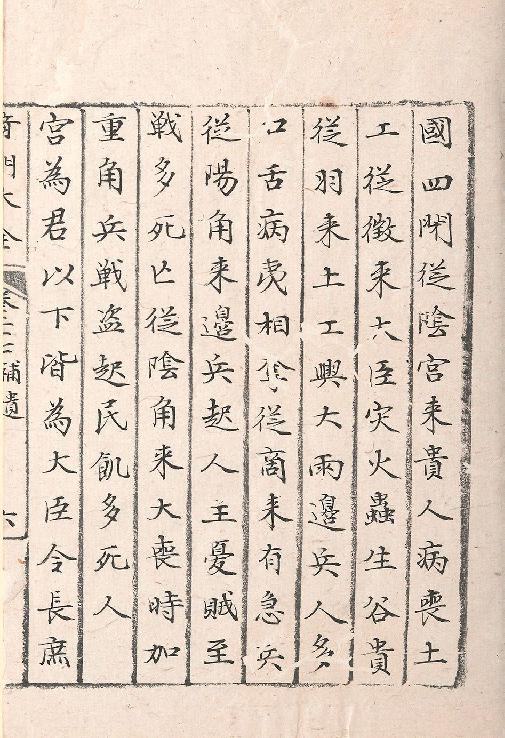 國四門從陰宮来貴人病喪土
工從徵来大臣灾火蟲生谷貴
從羽来土工興大雨邉兵人多
口舌病夷相從商来有急兵
從陽角来邉兵起人主憂賊至
戦多死亡從陰角来大喪時加
重角兵戦盗起民飢多死人
宮為君以下皆為大臣令長庶
奇門大全
補遺
六